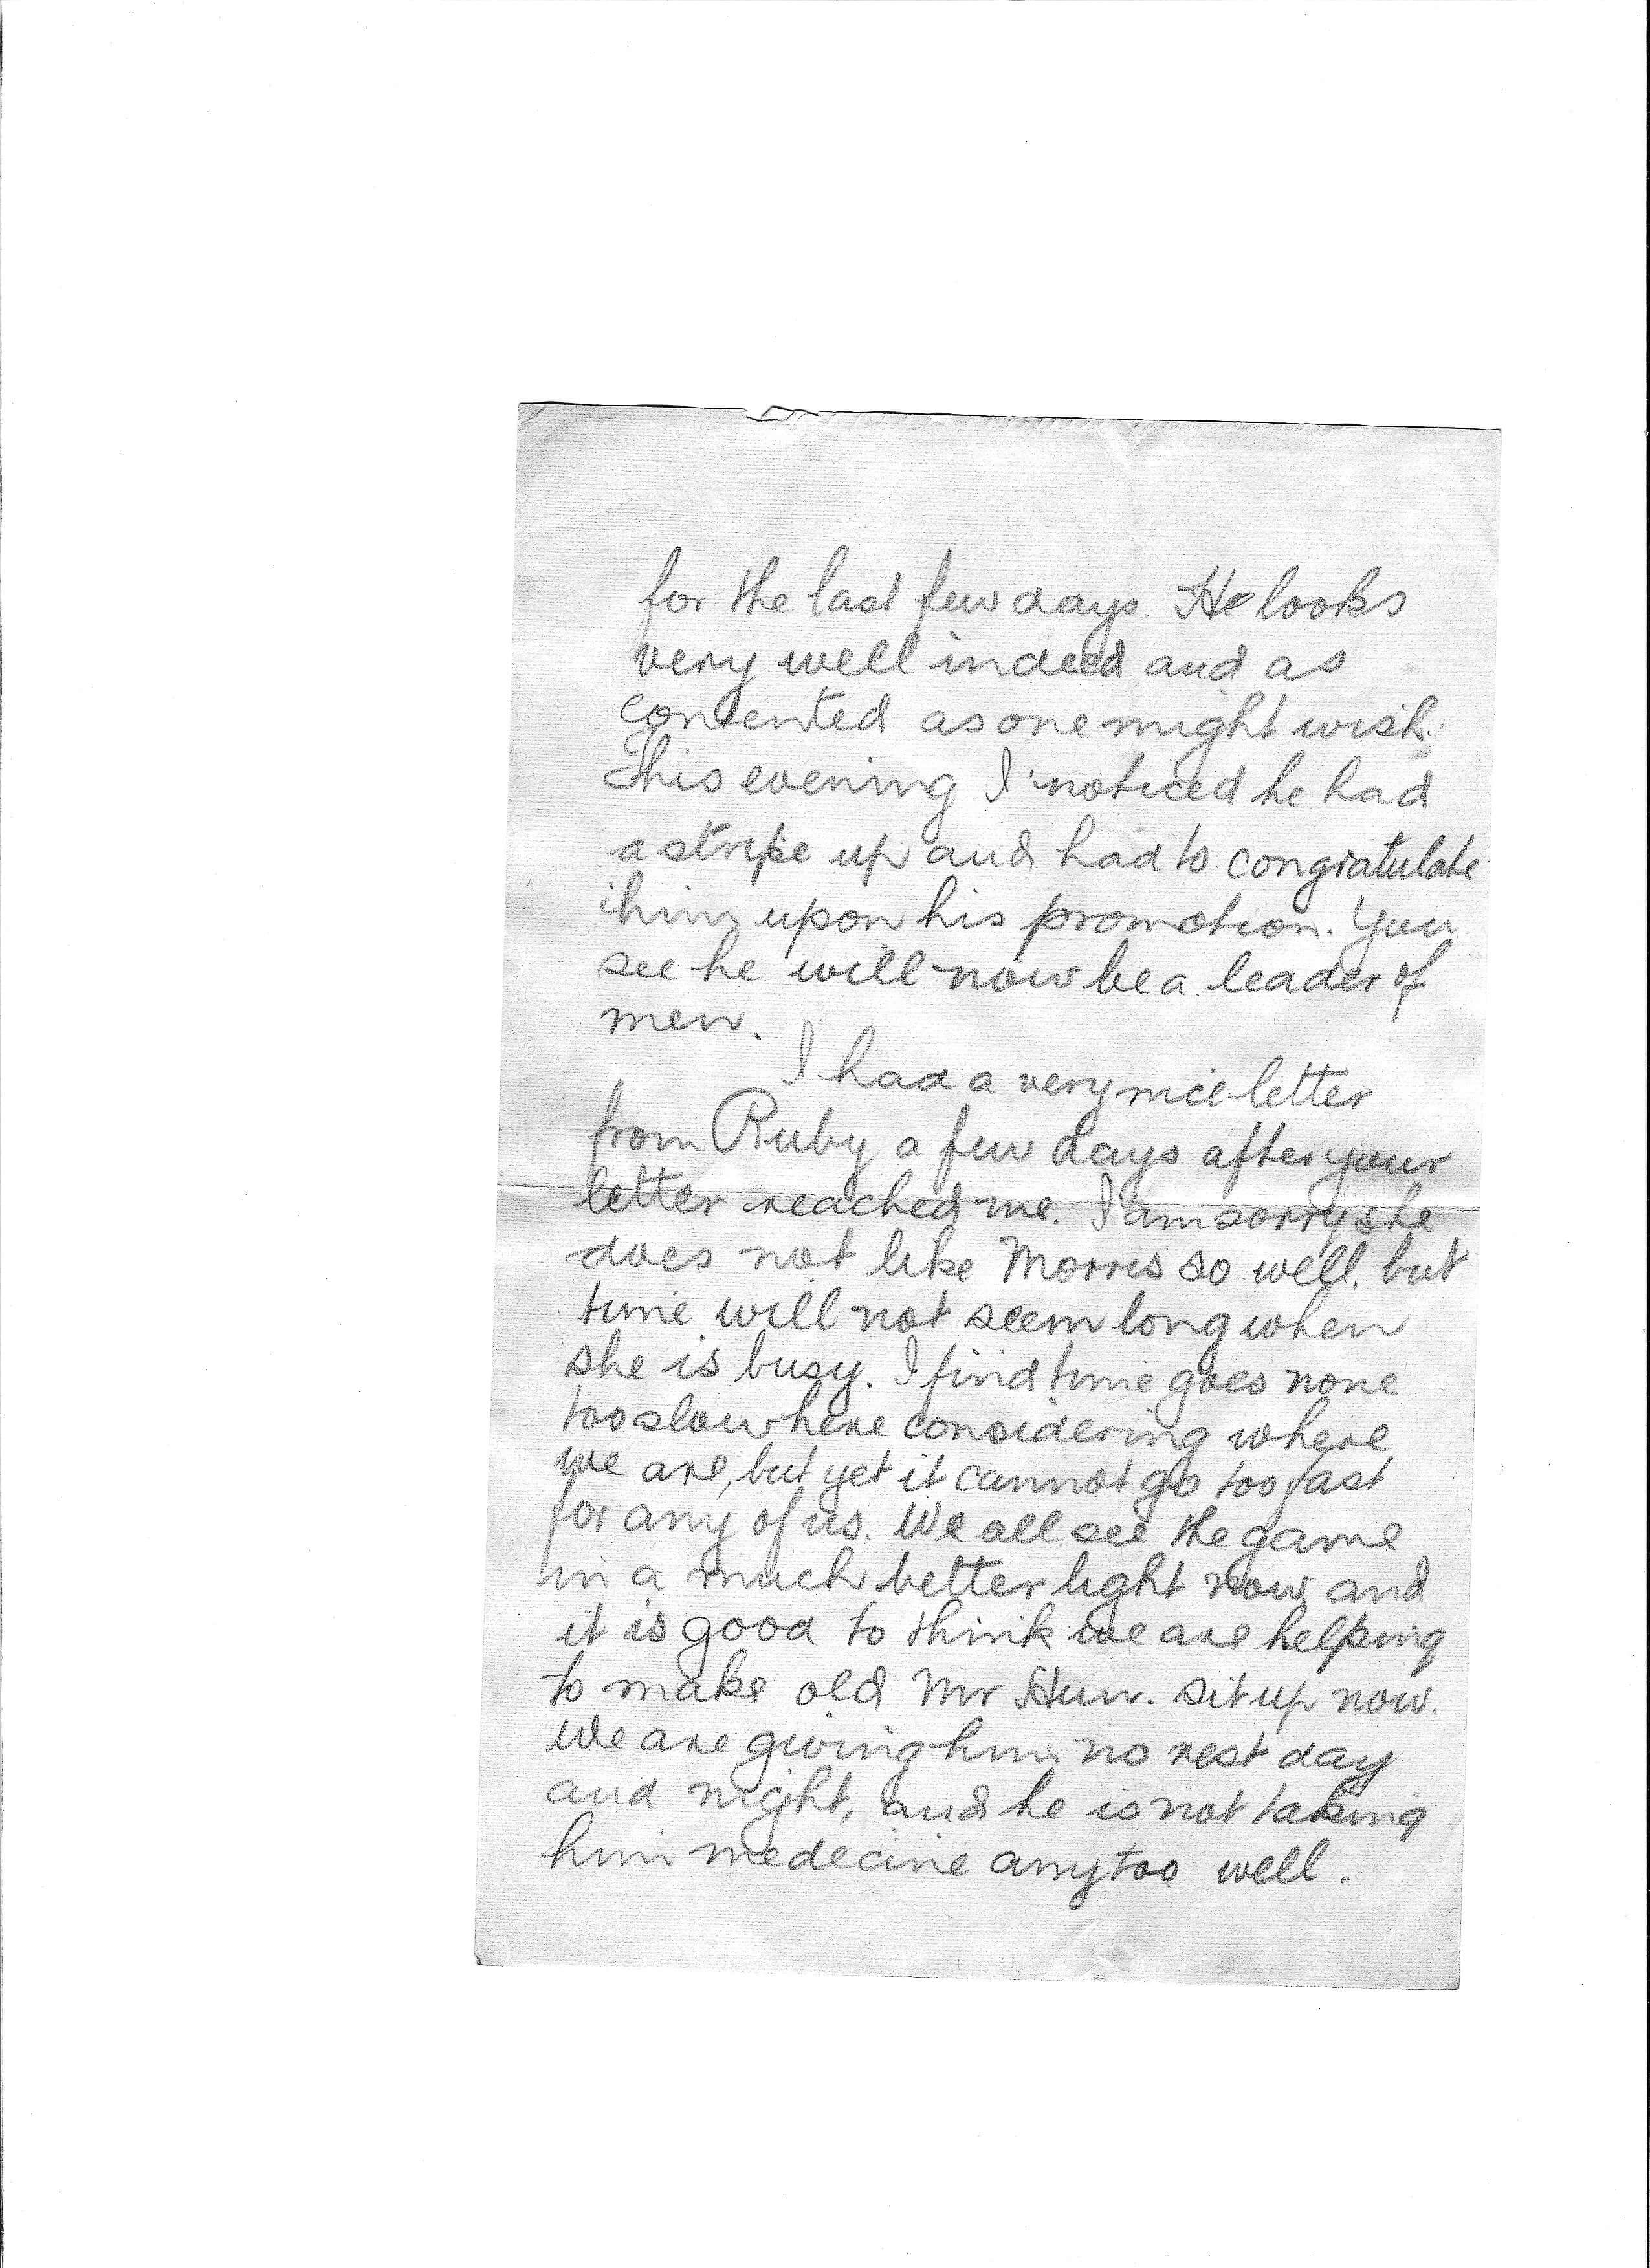 for the last few days. He looks
very well indeed and as
contented as one might wish.
This evening I noticed he had
a stripe up and had to congratulate
him upon his promotion. You
see he will now be a leader of
men.
I had a very nice letter
from Ruby a few days after your
letter reached me. I am sorry she
does not like Morris so well, but
time will not seem long when
she is busy. I find time goes none
too slow here considering where
we are, but yet it cannot go too fast
for any of us. We all see the game
in a much better light now and
it is good to think we are helping
to make old Mr Hun. sit up now.
We are giving him no rest day
and night, and he is not taking
him medecine any too well.